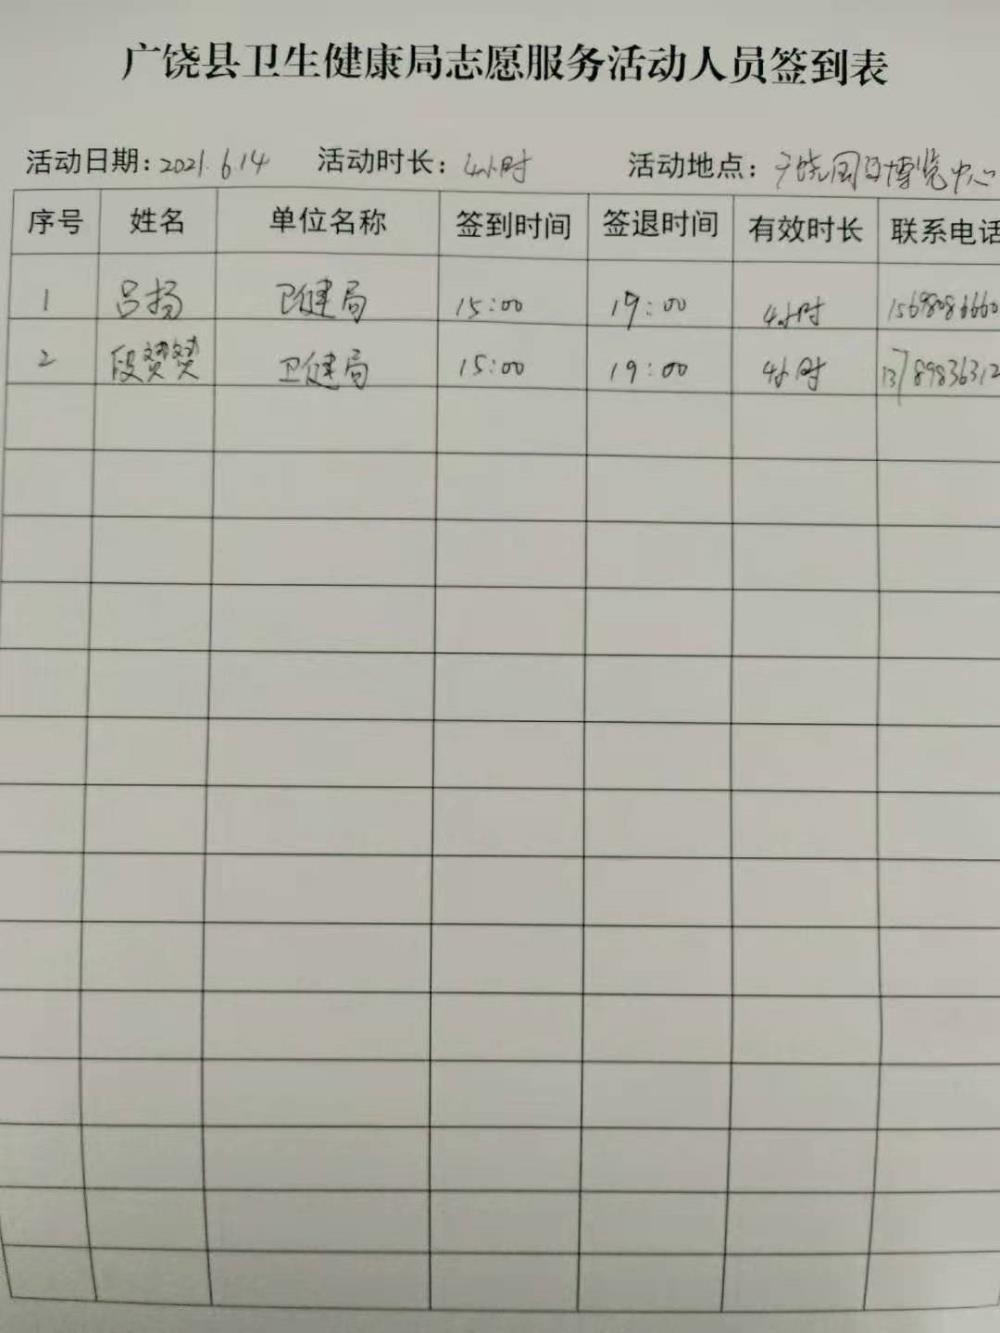 广饶县卫生健康局志愿服务活动人员签到表
活动日期：2021.6.14 活动时长：4小时 活动地点：广饶国际博览中心
序号 姓名 单位名称 签到时间 签退时间 有效时长 联系电话
1 吕扬 卫健局 15:00 19:00 4小时
2 段赟赟 卫健局 15:00 19:00 4小时